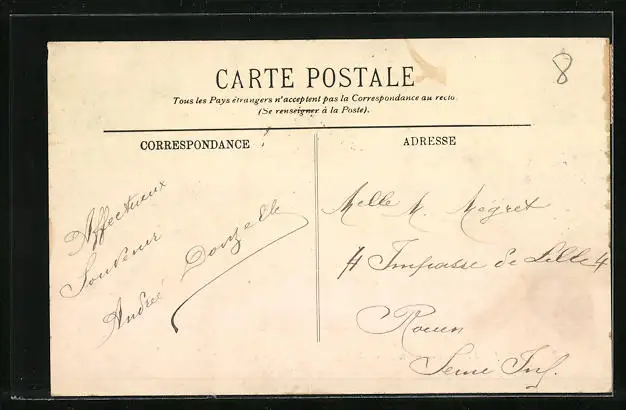 8
CARTE POSTALE
Tous les Pays étrangers n'acceptent pas la Correspondance au recto
(Se renseigner à la Poste).
CORRESPONDANCE
Affectueux
Souvenir
Andreé Donzelle
ADRESSE
Melle M. Mégret
4 Impasse de Lille 4
Rouen
Seine Inf.